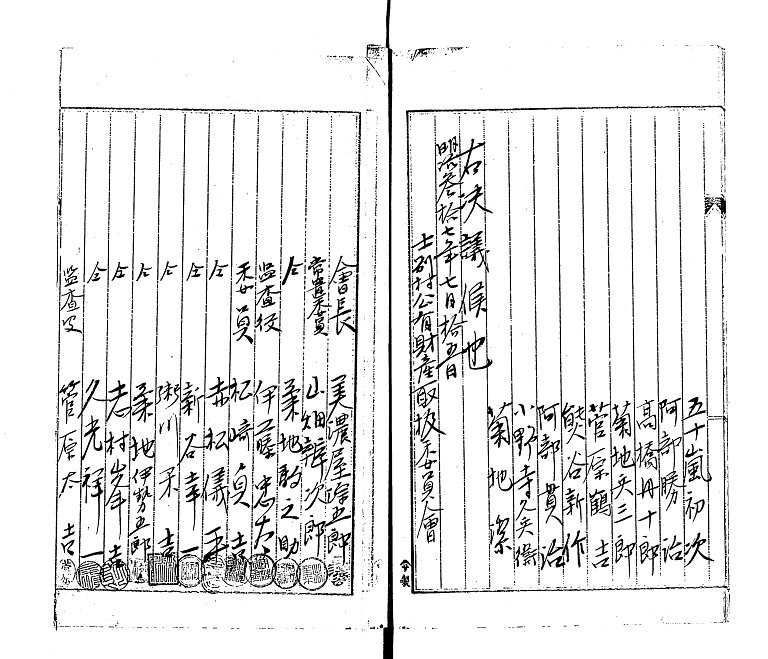 五十嵐初次
阿部勝治
高橋丹十郎
菊地兵三郎
菅原鶴吉
熊谷新作
阿部貫治
小野寺久兵衛
菊地潔
右決議候也
明治参拾七年七月拾五日
士別村公有財産取扱委員會
會長 美濃屋 五郎
常置委員 山畑辨次郎
仝 菊地敢之助
監査役 伊藤忠太
委員 松崎貞吉
仝 赤松儀平
仝 新谷幸一
仝 粥川 吉
仝 菊地伊勢五郎
仝 志村峯吉
仝 久光祥一
監査役 菅原太吉